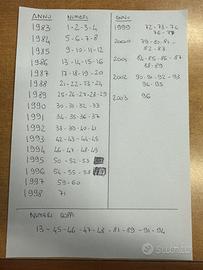 ANNO NUMERI
1983 1-2-3-4
1984 5-6-7-8
1985 9-10-11-12
1986 13-14-15-16
1987 17-18-19-20
1988 21-22-23-24
1989 25-26-27-28-29
1990 30-31-32-33
1991 34-35-36-37
1992 38-39-40-41
1993 42-43-44-45
1994 46-47-48-49
1995 50-52-53
1996 54-55-58
1997 59-60
1998 71
ANNO
1999 72-73-76
2000 79-80-81-
82-83
2001 84-85-86-87
88-89
2002 90-91-92-93
94-95
2003 96
NUMERI DOPPI
13-45-46-47-48-81-89-91-94
subito